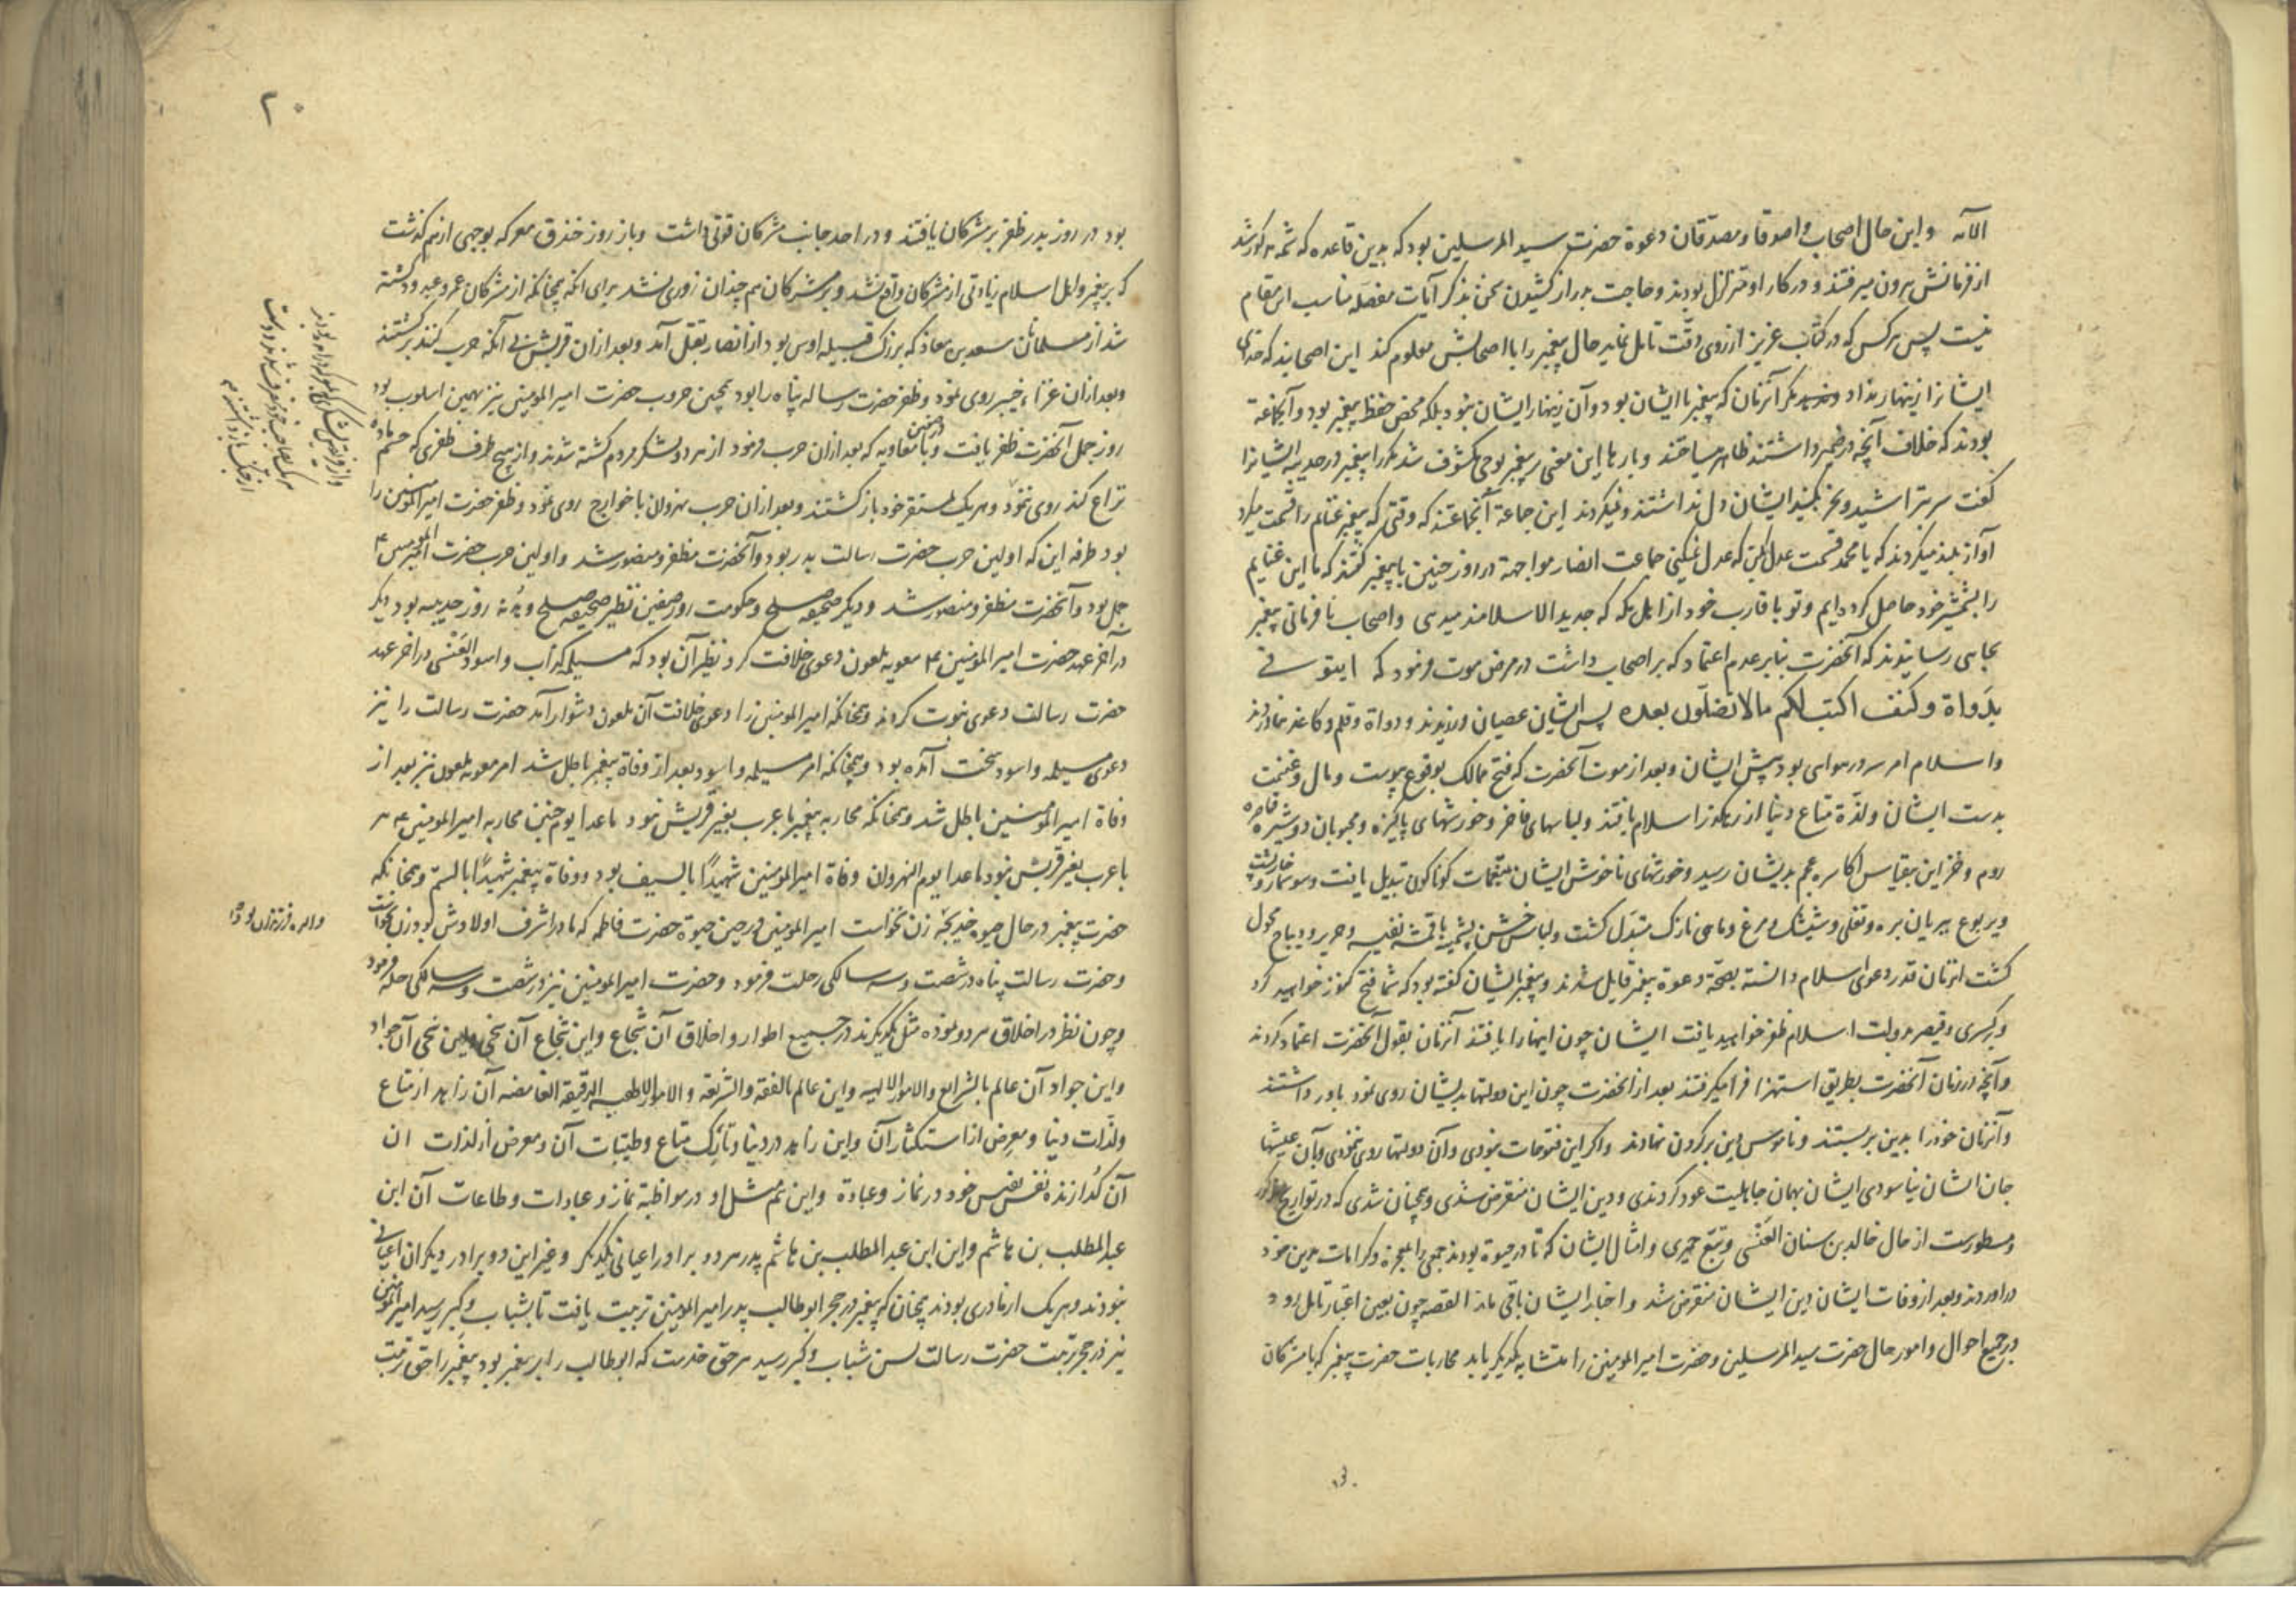 الآیه و این حال اصحاب و اصدقا و مصدقان دعوة حضرت سید المرسلین بود که بدین قاعده که شمه مذکور شد
از فرمانش بیرون میرفتند و در کار او متزلزل بودند و حاجت بدراز کشیدن سخن بذکر آیات مفصله مناسب این مقام
نیست پس هر کس که در کتاب عزیز از روی دقت تامل نماید حال پیغمبر را با اصحابش معلوم کند این اصحابند که خدای
ایشانرا زینهار نداد مکر آنزمان که پیغمبر با ایشان بود و آن زینهار ایشان نبود بلکه محض حفظ پیغمبر بود و آنجماعة
بودند که خلاف آنچه در ضمیر داشتند ظاهر میساختند و بارها این معنی بر پیغمبر بوحی مکشوف شد مکررا پیغمبر در حدیبیه ایشانرا
کفت سر بتراشید و نحر بکنید ایشان دل نداشتند و نمیکردند این جماعة آنجماعتند که وقتی که پیغمبر غنائم را قسمت میکرد
آواز بلند میکردند که یا محمد قسمت عدل بکن که عدل نمیکنی جماعت انصار مواجهة در روز حنین با پیغمبر کفتند که ما این غنایم
را بشمشیر خود حاصل کرده‌ایم و تو باقارب خود از اهل مکه که جدید الاسلامند میدهی و اصحاب نافرمانی پیغمبر
بجایی رسانیدند که آنحضرت بنابر عدم اعتماد که بر اصحاب داشت در مرض موت فرمود که ایتونی
بدواة و کتف اکتب لکم مالا تضلون بعده پس ایشان عصیان ورزیدند و دواة و قلم و کاغذ نیاوردند
و اسلام امر سرسری بود پیش ایشان و بعد از موت آنحضرت که فتح ممالک بوقوع پیوست و مال و غنیمت
بدست ایشان و لذة متاع دنیا از اسلام یافتند و لباسهای فاخر و خورشهای پاکیزه و محبوبان دوشیزه
روم و خزاین بیقیاس اکاسره عجم بدیشان رسید و خورشهای ناخوش ایشان بتنعمات کوناکون تبدیل یافت و سوسمار و خارپشت
و یربوع ببریان بره و نقلی و شیشک و مرغ و ماهی نازک مبدل کشت و لباس خشن پشمینه باقمشه نفیسه و حریر و دیباج محول
کشت انزمان قدر دعوی اسلام دانسته بصحة دعوة پیغمبر قایل شدند و پیغمبر ایشان کفته بود که شما فتح کنوز خواهید کرد
و بر کسری و قیصر بدولت اسلام ظفر خواهید یافت ایشان چون اینها را یافتند آنزمان بقول آنحضرت اعتماد کردند
و آنچه در زمان آنحضرت بطریق استهزا فرا میکرفتند بعد از آنحضرت چون این دولتها بدیشان روی نمود باور داشتند
و آنزمان خود را بدین بر بستند و ناموس دین بر کردن نهادند و اکر این فتوحات نبودی و آن دولتها روی ننمودی و بآن عیشها
جان ایشان نیاسودی ایشان بهمان جاهلیت عود کردندی و دین ایشان منقرض شدی و همچنان شدی که در تواریخ مذکور
و مسطورست از حال خالد بن سنان العنسی و تبع حمیری و امثال ایشان که تا در حیوة بودند جمعی را بمعجزه و کرامات بدین خود
در اوردند و بعد از وفات ایشان دین ایشان منقرض شد و اخبار ایشان باقی ماند القصه چون بعین اعتبار تامل رود
در جمیع احوال و امور حال حضرت سید المرسلین و حضرت امیر المومنین را متشابه یکدیکر یابد محاربات حضرت پیغمبر که با مشرکان
۲۰
بود در روز بدر ظفر بر مشرکان یافتند و در احد جانب مشرکان قوتی داشت و باز روز خندق معرکه بوجهی از هم کذشت
که بر پیغمبر و اهل اسلام زیادتی از مشرکان واقع نشد و بر مشرکان هم چندان زوری نشد برای انکه همچنانکه از مشرکان عمرو عبدود کشته
شد از مسلمانان سعد بن معاذ که بزرک قبیله اوس بود از انصار بقتل آمد و بعد ازان قریش بی آنکه حرب کنند برکشتند
و بعد ازان غزاء خیبر روی نمود و ظفر حضرت رساله پناه را بود همچنین حروب حضرت امیر المومنین نیز بهمین اسلوب بود
روز جمل آنحضرت ظفر یافت و با معاویه که بعد ازان حرب فرمود از هر دو لشکر مردم کشته شدند و از هیچ طرف ظفری که حسم ماده
نزاع کند روی ننمود و هر یک بمستقر خود باز کشتند و بعد ازان حرب نهروان با خوارج روی نمود و ظفر حضرت امیر المومنین را
بود طرفه این که اولین حرب حضرت رسالت بدر بود و آنحضرت مظفر و منصور شد و اولین حرب حضرت امیر المومنین
جمل بود و آنحضرت مظفر و منصور شد و دیکر صحیفه صلح و حکومت روز صفین نظیر صحیفه صلح و هدنه روز حدیبیه بود دیکر
در آخر عهد حضرت امیر المومنین معویه ملعون دعوی خلافت کرد نظیر آن بود که مسیلمه کذاب و اسود العنسی در آخر عهد
حضرت رسالت دعوی نبوت کردند و همچنانکه امیر المومنین را دعوی خلافت آن ملعون دشوار آمد حضرت رسالت را نیز
دعوی مسیلمه و اسود سخت آمده بود و همچنانکه امر مسیلمه و اسود بعد از وفاة پیغمبر باطل شد امر معویه ملعون نیز بعد از
وفاة امیر المومنین باطل شد و همچنانکه محاربه پیغمبر با عرب بغیر قریش نبود ماعدا یوم حنین محاربه امیر المومنین
با عرب بغیر قریش نبود ماعدا یوم النهروان وفاة امیر المومنین شهیدًا بالسیف بود و وفاة پیغمبر شهیدًا بالسم و همچنانکه
حضرت پیغمبر در حال حیوه خدیجه زن نخواست امیر المومنین در حین حیوة حضرت فاطمه که مادر اشرف اولادش بود زن نخواست
و حضرت رسالت پناه در شصت و سه سالکی رحلت فرمود و حضرت امیر المومنین نیز در شصت و سه سالکی رحله فرمود
و چون نظر در اخلاق هر دو نموده مثل یکدیکرند در جمیع اطوار و اخلاق آن شجاع و این شجاع آن سخی و این سخی آن جواد
و این جواد آن عالم بالشرایع والامور الالهیه و این عالم بالفقه والشریعه والامور الالهیه الدقیقة الغامضه آن زاهد از متاع
ولذات دنیا و معرض از استکثار آن و این زاهد در دنیا و تارک متاع و طیبات آن و معرض از لذات ان
آن کدازنده نفس نفیس خود در نماز و عبادة و این هم مثل او در مواظبة نماز و عبادات و طاعات آن ابن
عبد المطلب بن هاشم و این ابن عبد المطلب بن هاشم پدر هر دو برادر اعیانی یکدیکر و غیر این دو برادر دیکران اعیانی
نبودند و هر یک از مادری بودند همچنان که پیغمبر در حجر ابوطالب پدر امیر المومنین تربیت یافت تا بشباب و کبر رسید امیر المومنین
نیز در حجر تربیت حضرت رسالت بسن شباب و کبر رسید هر حق خدمت که ابوطالب را بر پیغمبر بود پیغمبر را حق تربیت